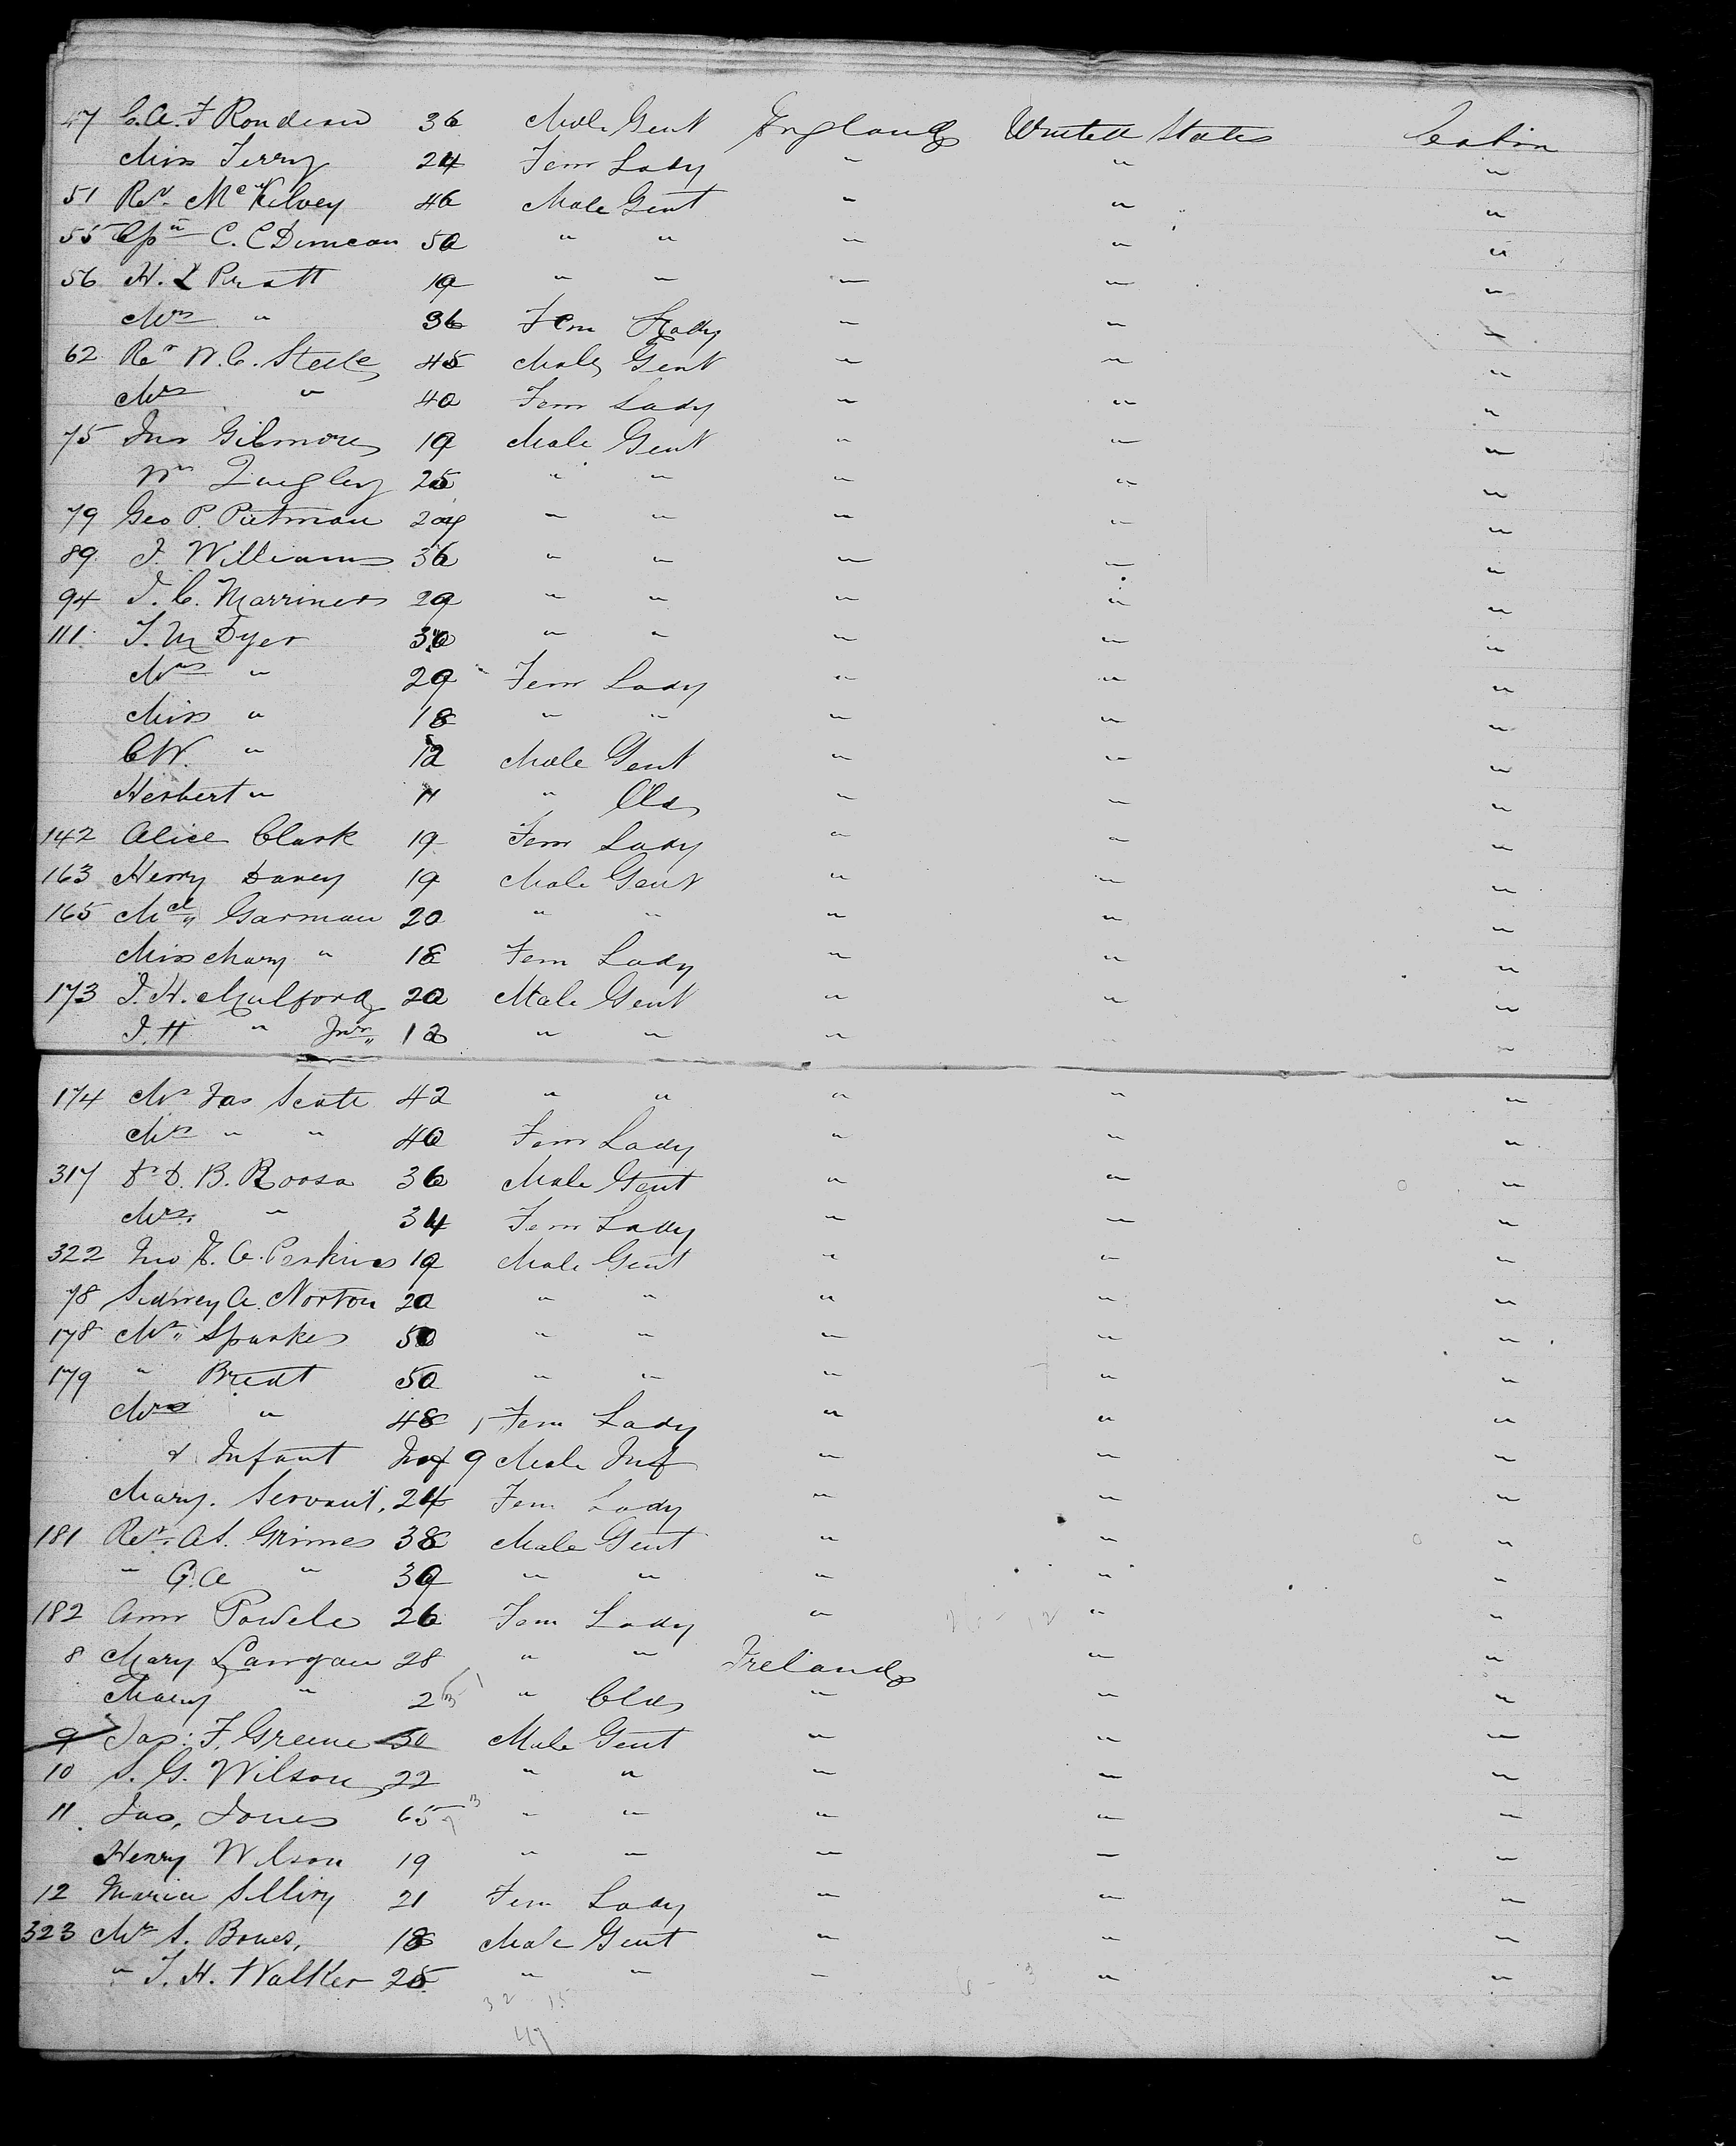 47 C.A.F Rondeau 36 Male Gent England United States Cabin
Miss Terry 24 Fem Lady " " "
51 Rev. McKelvey 46 Male Gent " " "
55 Cpn C. C Duncan 50 " " " " "
56 H. L Pratt 19 " " " " "
Mrs " 36 Fem Lady " " "
62 Rev W.C. Steele 45 Male Gent " " "
Mrs " 40 Fem Lady " " "
75 Jno Gilmore 19 Male Gent " " "
Wm Quigley 25 " " " " "
79 Geo P. Putman " " " " "
89 J. Williams 36 " " " " "
94 J. C. Marriner 29 " " " " "
111 T. M Dyer 30 " " " " "
Mrs " 29 Fem Lady " " "
Miss " 18 " " " " "
C W. " 12 Male Gent " " "
Herbert " 11 " Cld " " "
142 Alice Clark 19 Fem Lady " " "
163 Henry Davey 19 Male Gent " " "
165 Garman 20 " " " " "
Miss Mary " 18 Fem Lady " " "
173 J. H. Mulford 20 Male Gent " " "
J. H " Jnr 12 " " " "
174 Mr Jas Scott 42 " " " " "
Mrs " " 40 Fem Lady " " "
317 Dr D. B. Roosa 36 Male Gent " " "
Mrs. " 34 Fem Lady " " "
322 Jno A. Perkins 19 Male Gent " " "
78 Sidney A. Norton 20 " " " " "
178 Mr Sparkes 50 " " " " "
179 " Bredt 50 " " " " "
Mrs " 48 Fem Lady " " "
& Infant Inf 9 Male Inf " " "
Mary. Servant. 24 Fem Lady " " "
181 Rev. A S. Grimes 38 Male Gent " " "
" G. A " 39 " " " " "
182 Ann Powele 26 Fem Lady " " "
8 Mary Langan 28 " " Ireland " "
Mary " 2 " Cld " " "
9 Jas: F. Greene 50 Male Gent " " "
10 S. G. Wilson 22 " " " " "
11 Jas, Jones 65 " " " " "
Henry Wilson 19 " " " " "
12 Maria 21 Fem Lady " " "
323 Mr S. Bones, 18 Male Gent " " "
" T. H. Walker 25 " " " " "
32 15
47